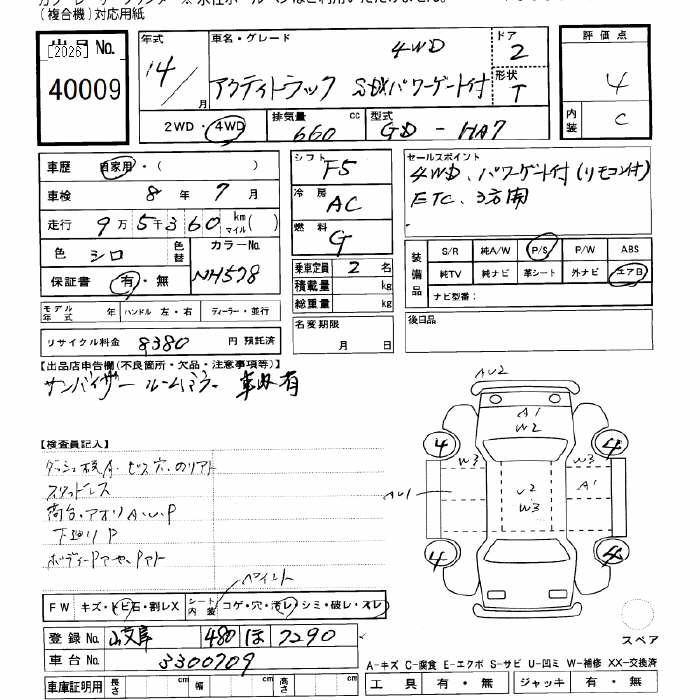 (複合機)対応用紙
出品No.
[2026]
40009
年式 14/ 月
車名・グレード 4WD
アクティトラック SDXパワーゲート付
ドア 2
形状 T
評価点 4
内装 C
2WD・4WD 排気量 660 cc 型式 GD-HA7
車歴 自家用・( )
車検 8年 7月
走行 9万5千360 km マイル( )
色 シロ 色替 カラーNo. NH578
保証書 有・無
シフト F5
冷房 AC
燃料 G
乗車定員 2 名
積載量 kg
総重量 kg
セールスポイント
4WD、パワーゲート付(リモコン付)
ETC、3方開
装備品 S/R 純A/W P/S P/W ABS
純TV 純ナビ 革シート 外ナビ エアB
ナビ型番:
モデル年式 年 ハンドル 左・右 ディーラー・並行
リサイクル料金 8380 円 預託済
名変期限 月 日
後日品
【出品店申告欄(不良箇所・欠品・注意事項等)】
サンバイザー ルームミラー 車内有
【検査員記入】
スタッドレス
荷台・アオリA.U.P
下廻りP
ペイント
FW キズ・トビ石・割レX シート内装 コゲ・穴・汚レ・シミ・破レ・スレ
登録No. 480 ほ 7290
車台No. 3300709
車庫証明用 長さ cm 幅 cm 高さ cm
AU2
A1
W2
4 4
W3 W3
AU1
U2
W3
A1
4 4
スペア
A-キズ C-腐食 E-エクボ S-サビ U-凹ミ W-補修 XX-交換済
工具 有・無 ジャッキ 有・無